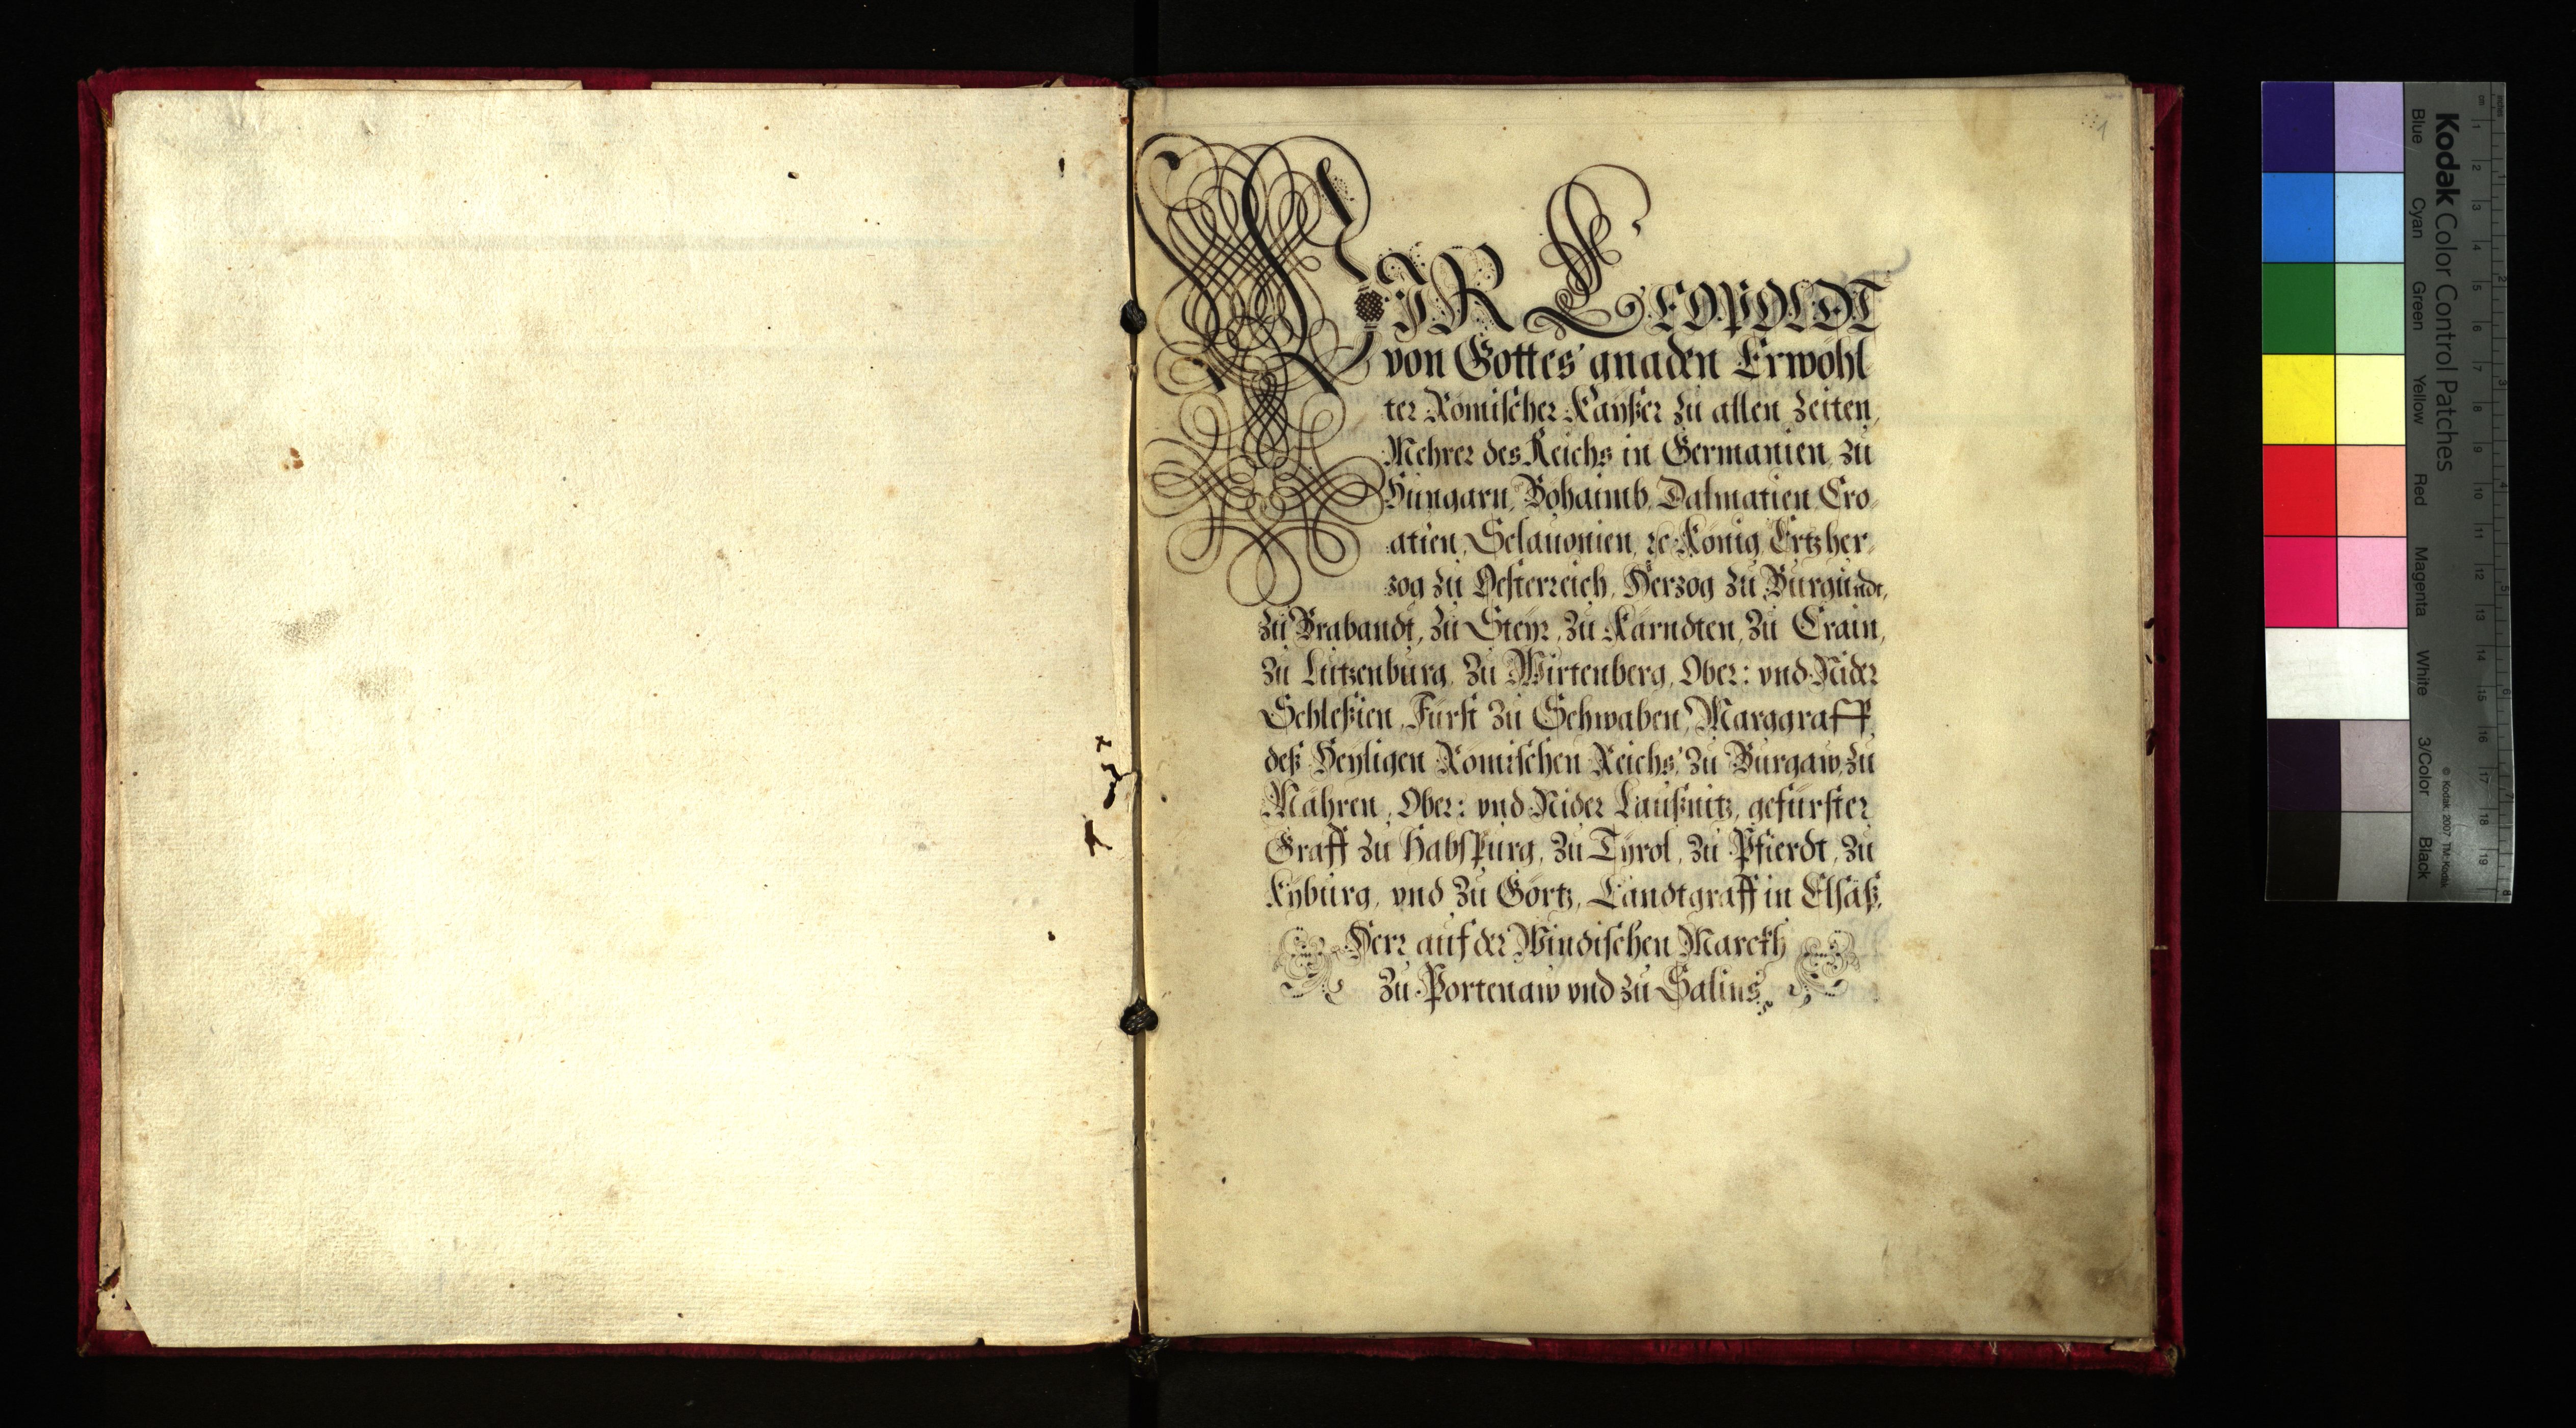 1
WIR LEOPOLDT
von Gottes gnaden Erwöhl
ter Römischer Kayßer zu allen Zeiten,
Mehrer des Reichs in Germanien, zu
Hungarn, Bohaimb, Dalmatien, Cro-
atien, Sclauonien, ꝛc König, Ertzher-
zog zu Oesterreich, Herzog zu Burgundt,
zu Brabandt, zu Steyr, zu Kärndten, zu Crain,
zu Lützenburg, zu Würtenberg, Ober: vnd Nider
Schleßien, Fürst zu Schwaben, Marggraff
deß Heyligen Römischen Reichs, zu Burgaw, zu
Mähren, Ober: vnd Nider Laußnitz, gefürster
Graff zu Habspurg, zu Tyrol, zu Pfierdt, zu
Kyburg, vnd zu Görtz, Landtgraff in Elsäß,
Herr auf der Windischen Marckh
zu Portenaw vnd zu Salins
Kodak Color Control Patches
Blue Cyan Green Yellow Red Magenta White 3/Color Black
© Kodak, 2007 TM: Kodak
cm 1 2 3 4 5 6 7 8 9 10 11 12 13 14 15 16 17 18 19
inches 1 2 3 4 5 6 7 8